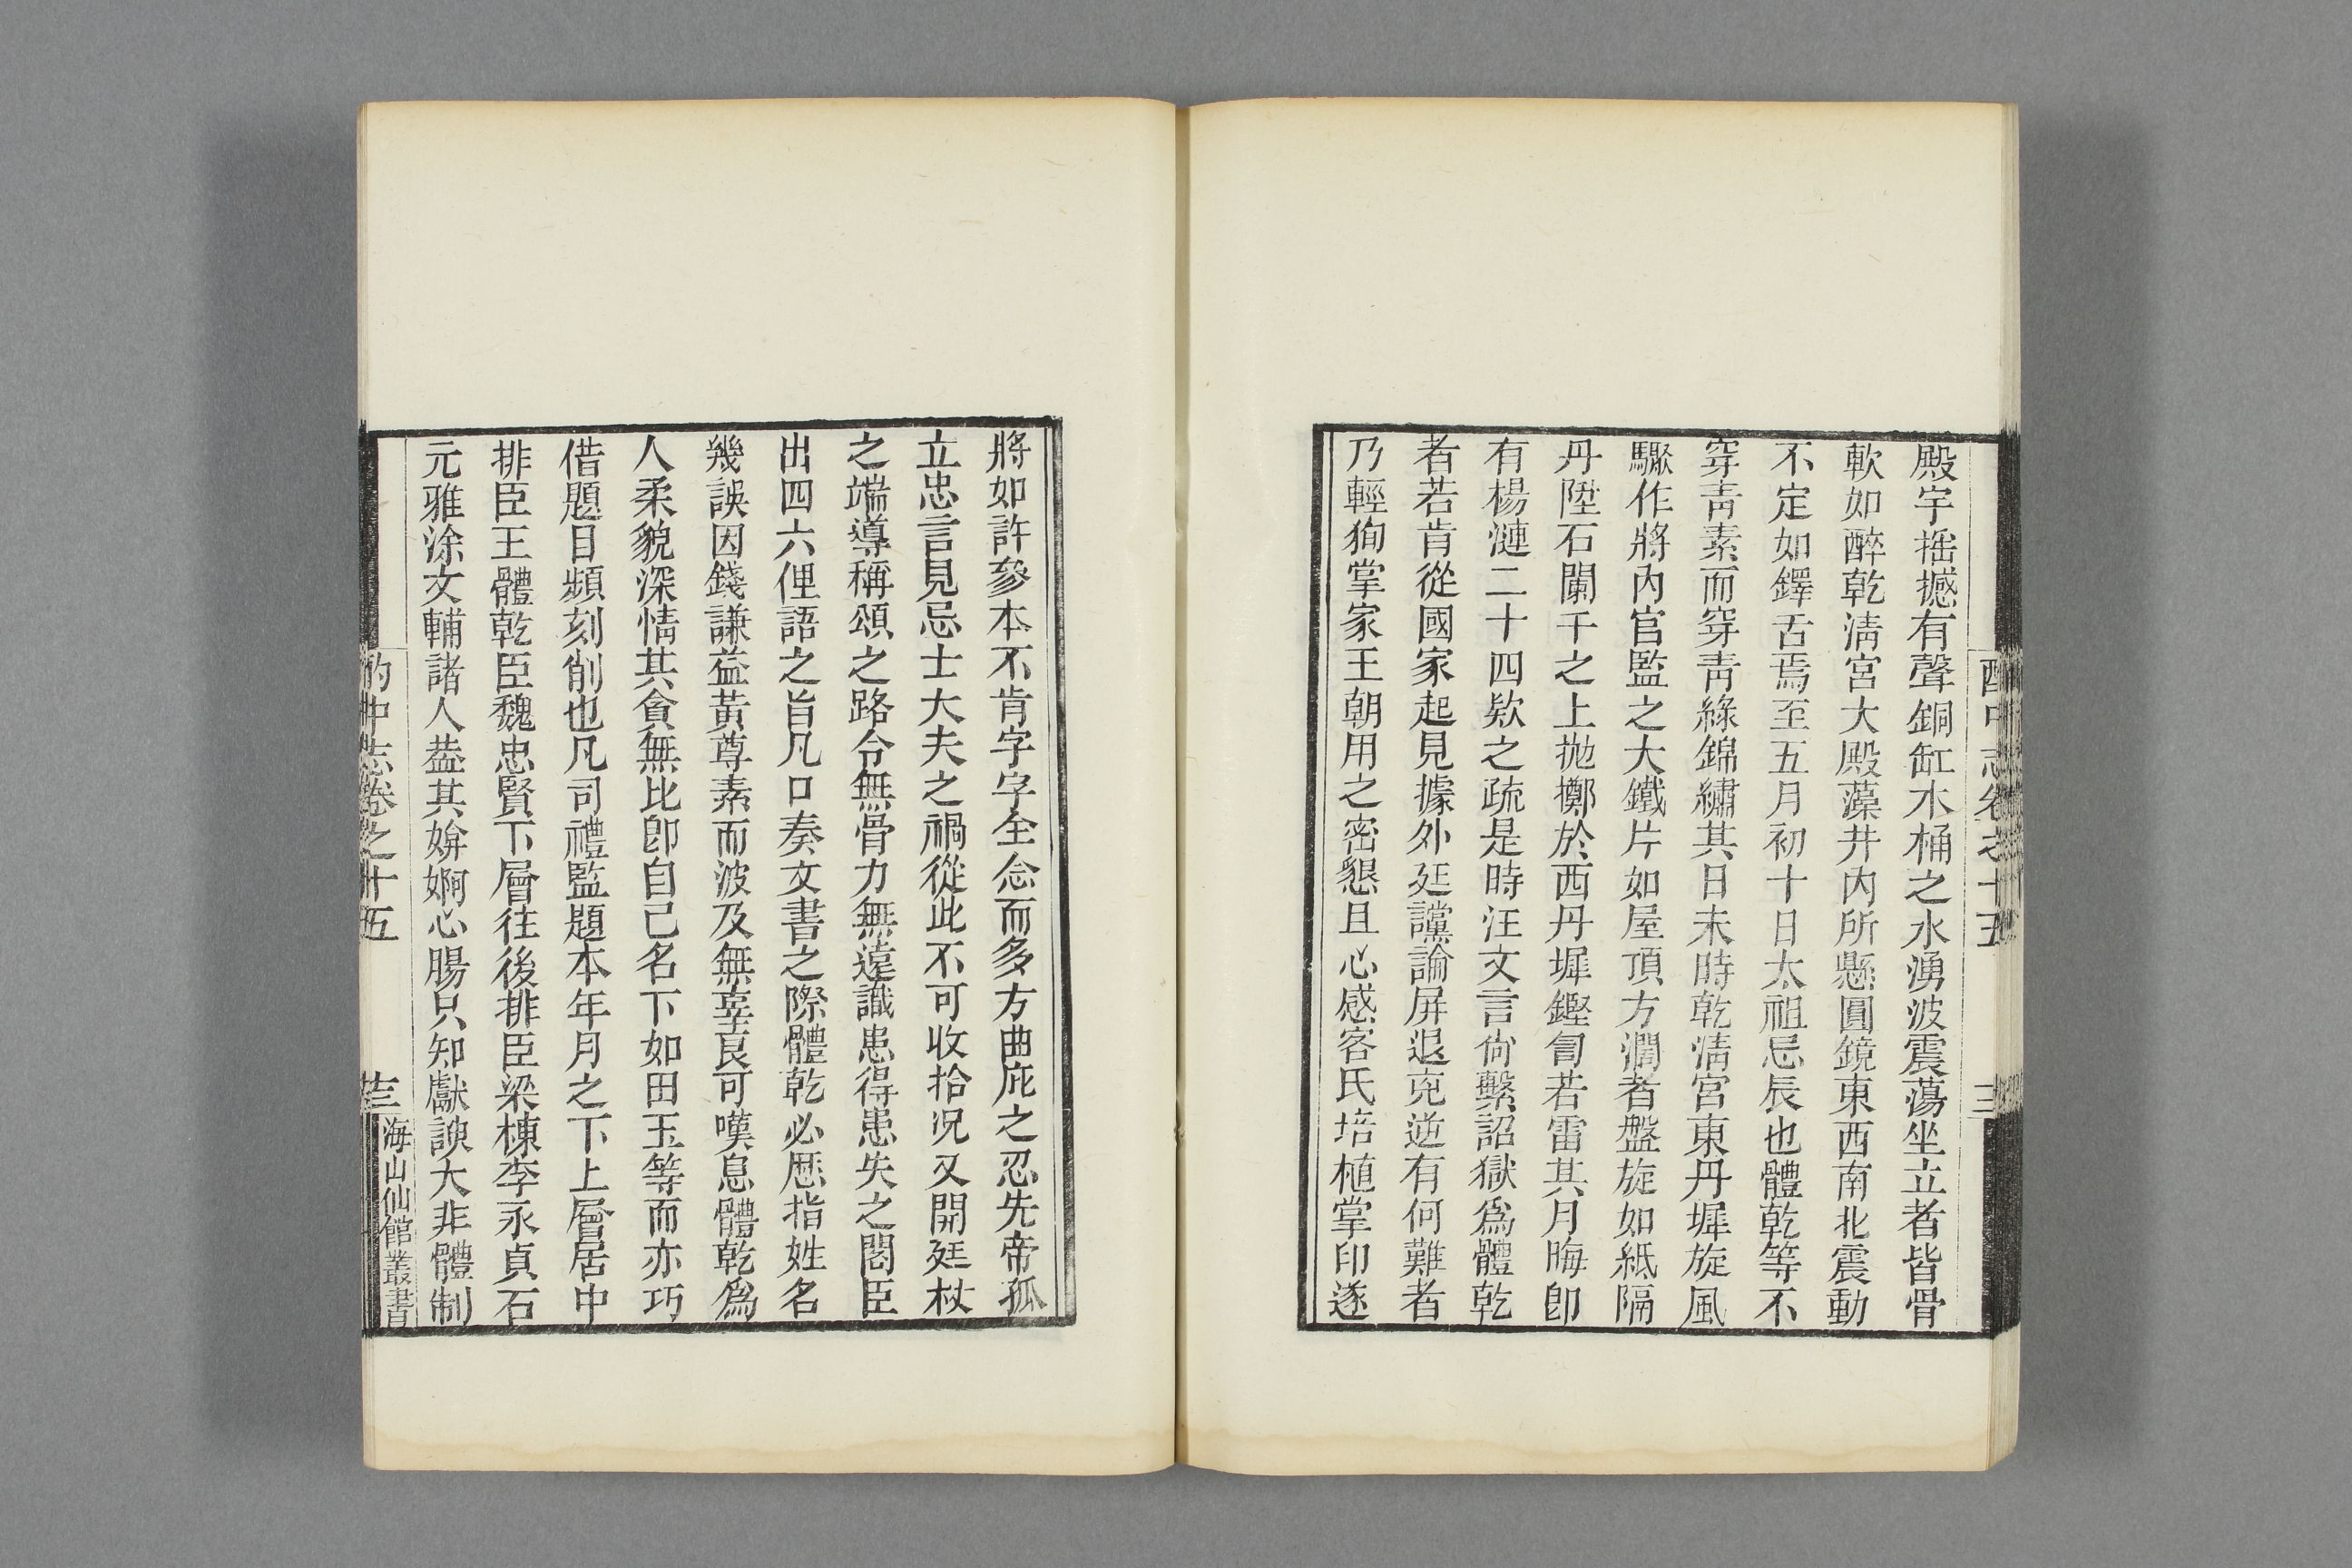 酌中志卷之十五
三
殿宇搖撼有聲銅缸木桶之水湧波震蕩坐立者皆骨
軟如醉乾淸宮大殿藻井內所懸圓鏡東西南北震動
不定如鐸舌焉至五月初十日太祖忌辰也體乾等不
穿靑素而穿靑綠錦繡其日未時乾淸宮東丹墀旋風
驟作將內官監之大鐵片如屋頂方濶者盤旋如紙隔
丹陛石闌干之上拋擲於西丹墀鏗訇若雷其月晦卽
有楊漣二十四欵之疏是時汪文言尙繫詔獄爲體乾
者若肯從國家起見據外廷讜論屏退兇逆有何難者
乃輕狥掌家王朝用之密懇且心感客氏培植掌印遂
將如許參本不肯字字全念而多方曲庇之忍先帝孤
立忠言見忌士大夫之禍從此不可收拾况又開廷杖
之端導稱頌之路令無骨力無遠識患得患失之閣臣
出四六俚語之旨凡口奏文書之際體乾必歷指姓名
幾誤因錢謙益黃尊素而波及無辜良可嘆息體乾爲
人柔貌深情其貪無比卽自己名下如田玉等而亦巧
借題目頻刻削也凡司禮監題本年月之下上層居中
排臣王體乾臣魏忠賢下層往後排臣梁棟李永貞石
元雅涂文輔諸人葢其媕婀心腸只知獻諛大非體制
酌中志卷之十五
三
海山仙館叢書